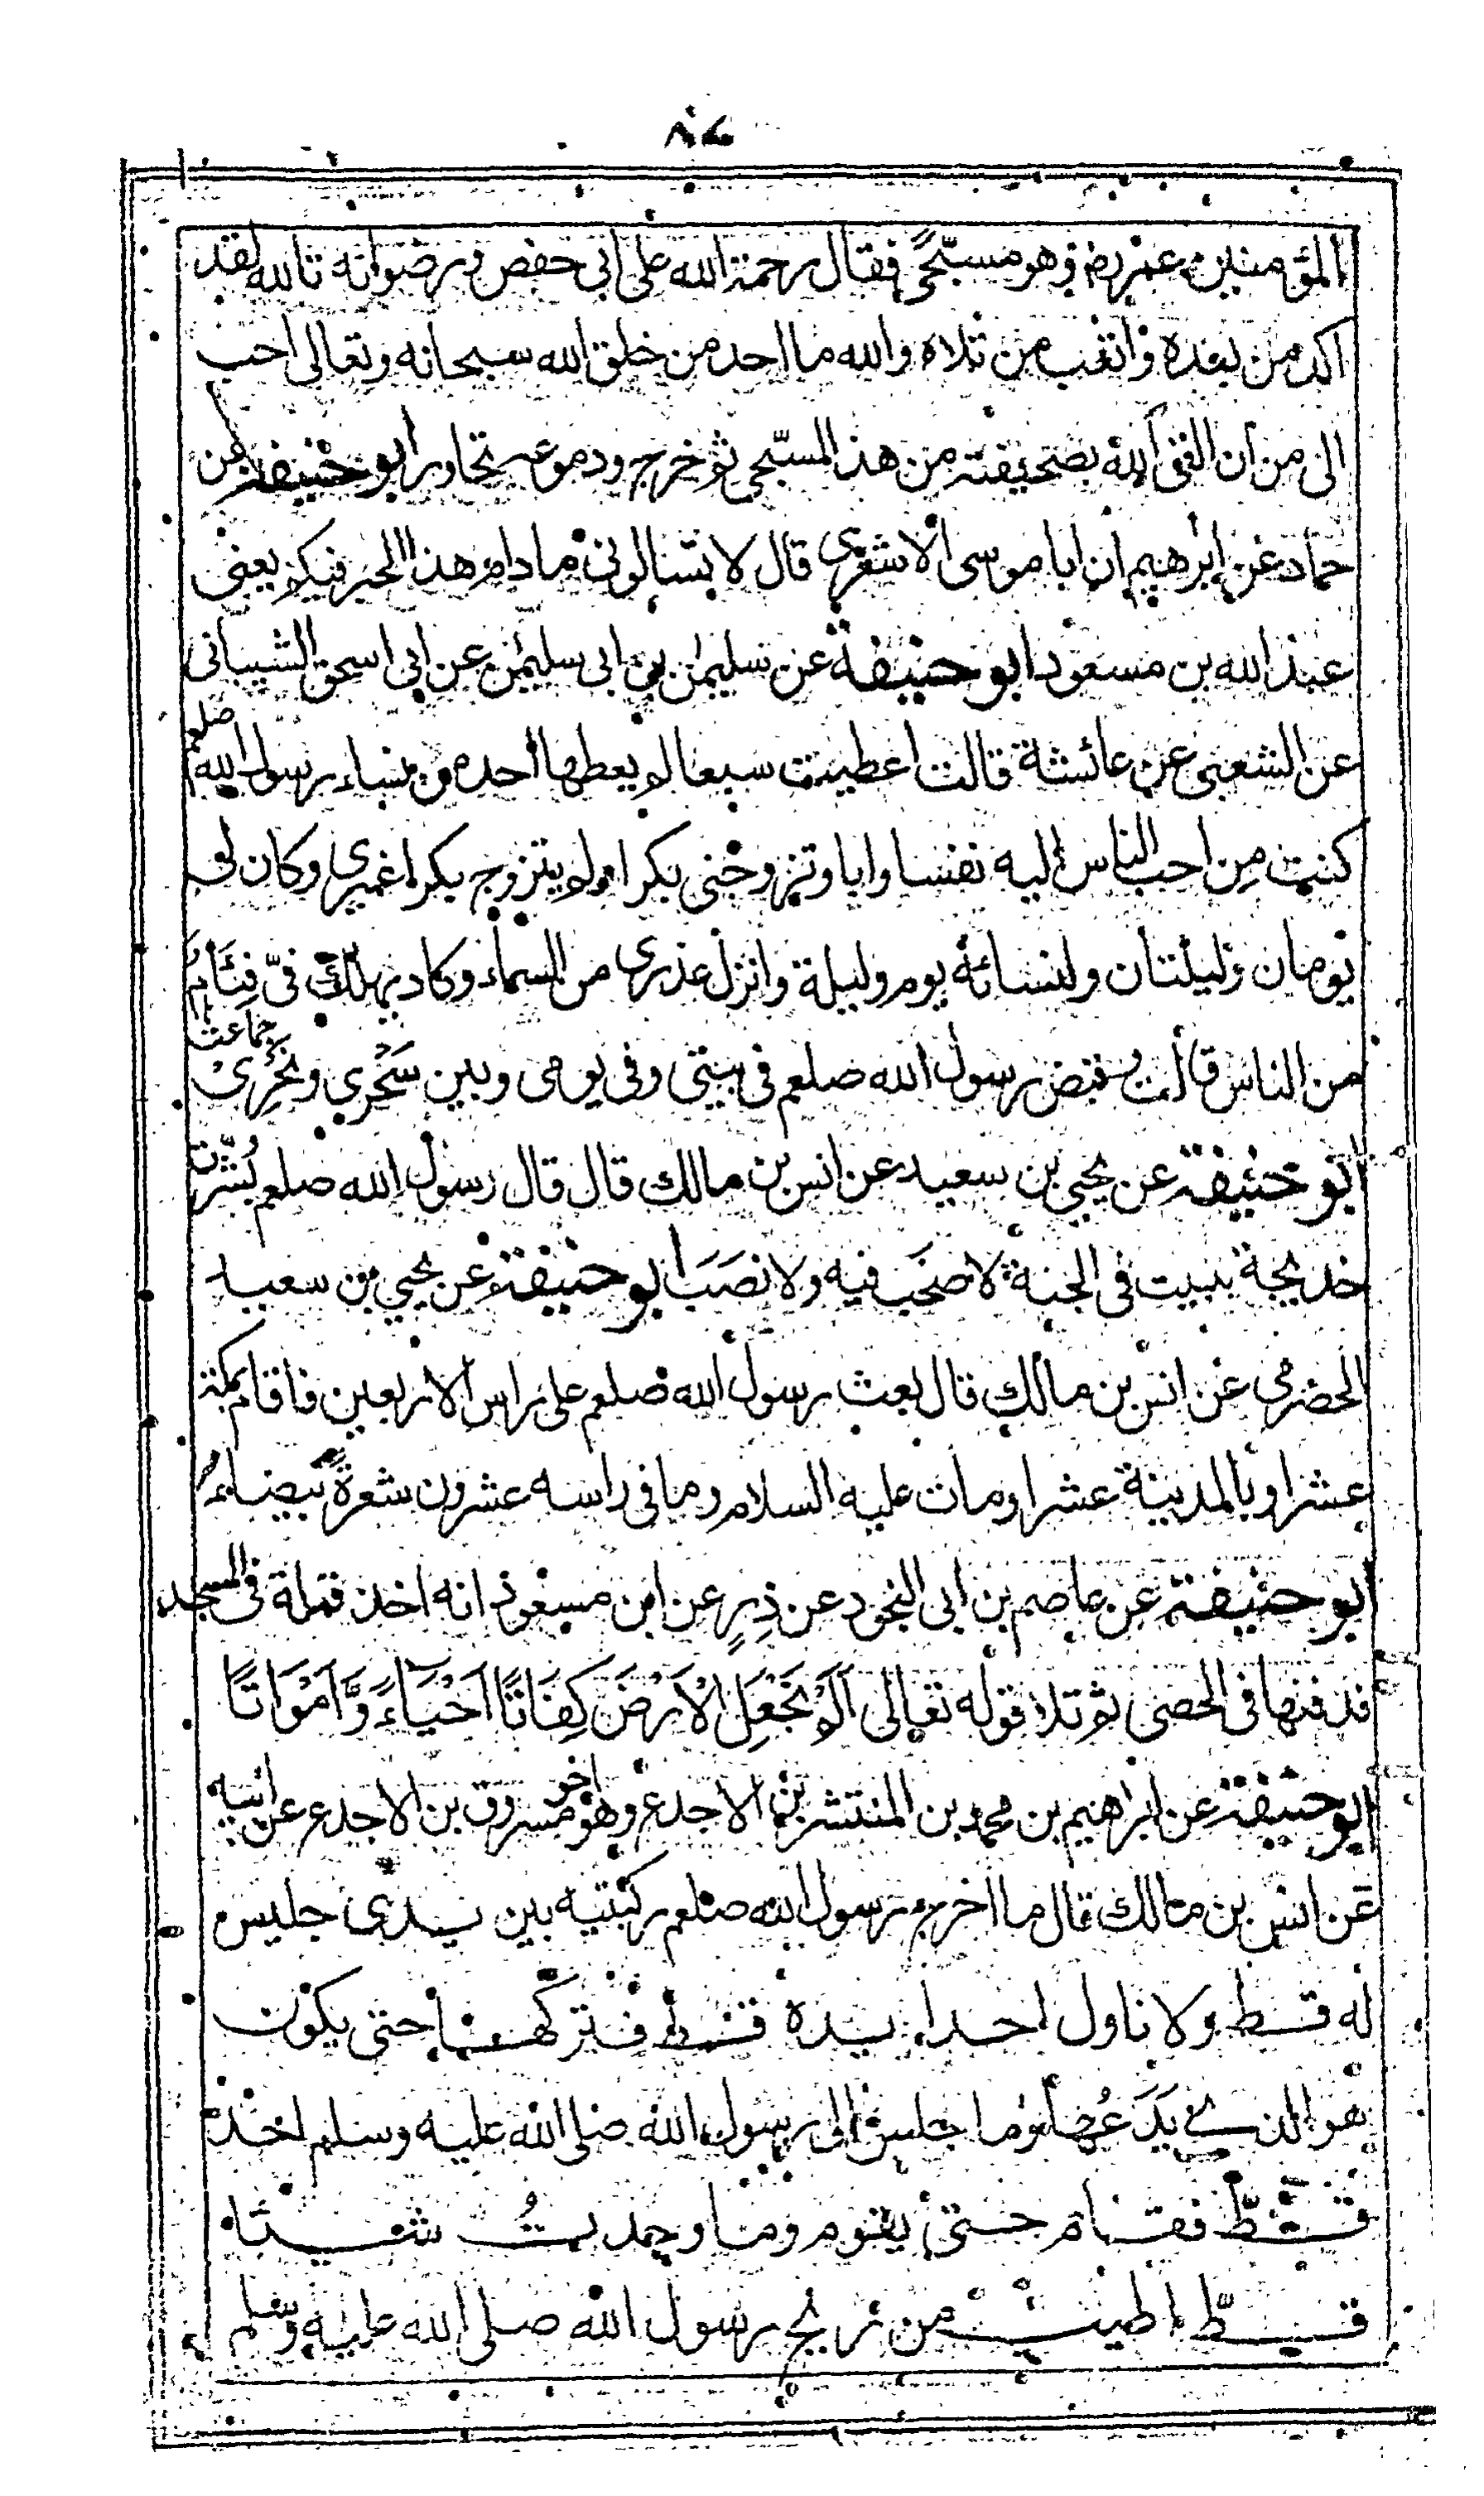 ٨٤
المؤمنين عمر رض وهو مسبّجًى فقال رحمة الله على ابى حفص ورضوانه تالله لقد
اكد من بعده واتعب من تلاه والله ما احد من خلق الله سبحانه وتعالى احب
الى من ان القى الله بصحيفته من هذا المسبّجى ثم خرج ودموعه تحادر ابو حنيفة عن
حماد عن ابرهيم ان ابا موسى الاشعرى قال لا تسالونى ما دام هذا الحبر فيكم يعنى
عبد الله بن مسعود ابو حنيفة عن سليمٰن بن ابى سليمٰن عن ابى اسحق الشيبانى
عن الشعبى عن عائشة قالت اعطيت سبعا لم يعطها احد من نساء رسول الله صلعم
كنت من احب الناس اليه نفسا وابا وتزوجنى بكرا ولم يتزوج بكرا غيرى وكان لى
يومان وليلتان ولنسائه يوم وليلة وانزل عذرى من السماء وكاد يهلك فىّ فِئَامٌ
جماعت
من الناس قالت قبض رسول الله صلعم فى بيتى وفى يومى وبين سَحْرِى ونَحْرِىْ
ابو حنيفة عن يحيى بن سعيد عن انس بن مالك قال قال رسول الله صلعم بُشّرت
خديجة ببيت فى الجنة لا صخب فيه ولا نصَبَ ابو حنيفة عن يحيى بن سعيد
الحضرمى عن انس بن مالك قال بعث رسول الله صلعم على راس الاربعين فاقام بمكة
عشرا وبالمدينة عشرا ومات عليه السلام وما فى راسه عشرون شعرة بيضاء
ابو حنيفة عن عاصم بن ابى النجود عن ذِرٍ عن ابن مسعود انه اخذ قملة فى المسجد
فدفنها فى الحصى ثم تلا قوله تعالى اَلَمْ نَجْعَلِ الْاَرْضَ كِفَاتًا اَحْيَاءً وَّاَمْوَاتًا
ابو حنيفة عن ابراهيم بن محمد بن المنتشر بن الاجدع وهو اخو مسروق بن الاجدع عن ابيه
عن انس بن مالك قال ما اخرج رسول الله صلعم ركبتيه بين يدى جليس
له قط ولا ناول احدا يده قط فتركها حتى يكون
هو الذى يَدَعُها وما جلس الى رسول الله صلى الله عليه وسلم احد
قطّ فقام حتى يقوم وما وجدتُ شيئا
قطّ اطيب من ريح رسول الله صلى الله عليه وسلم